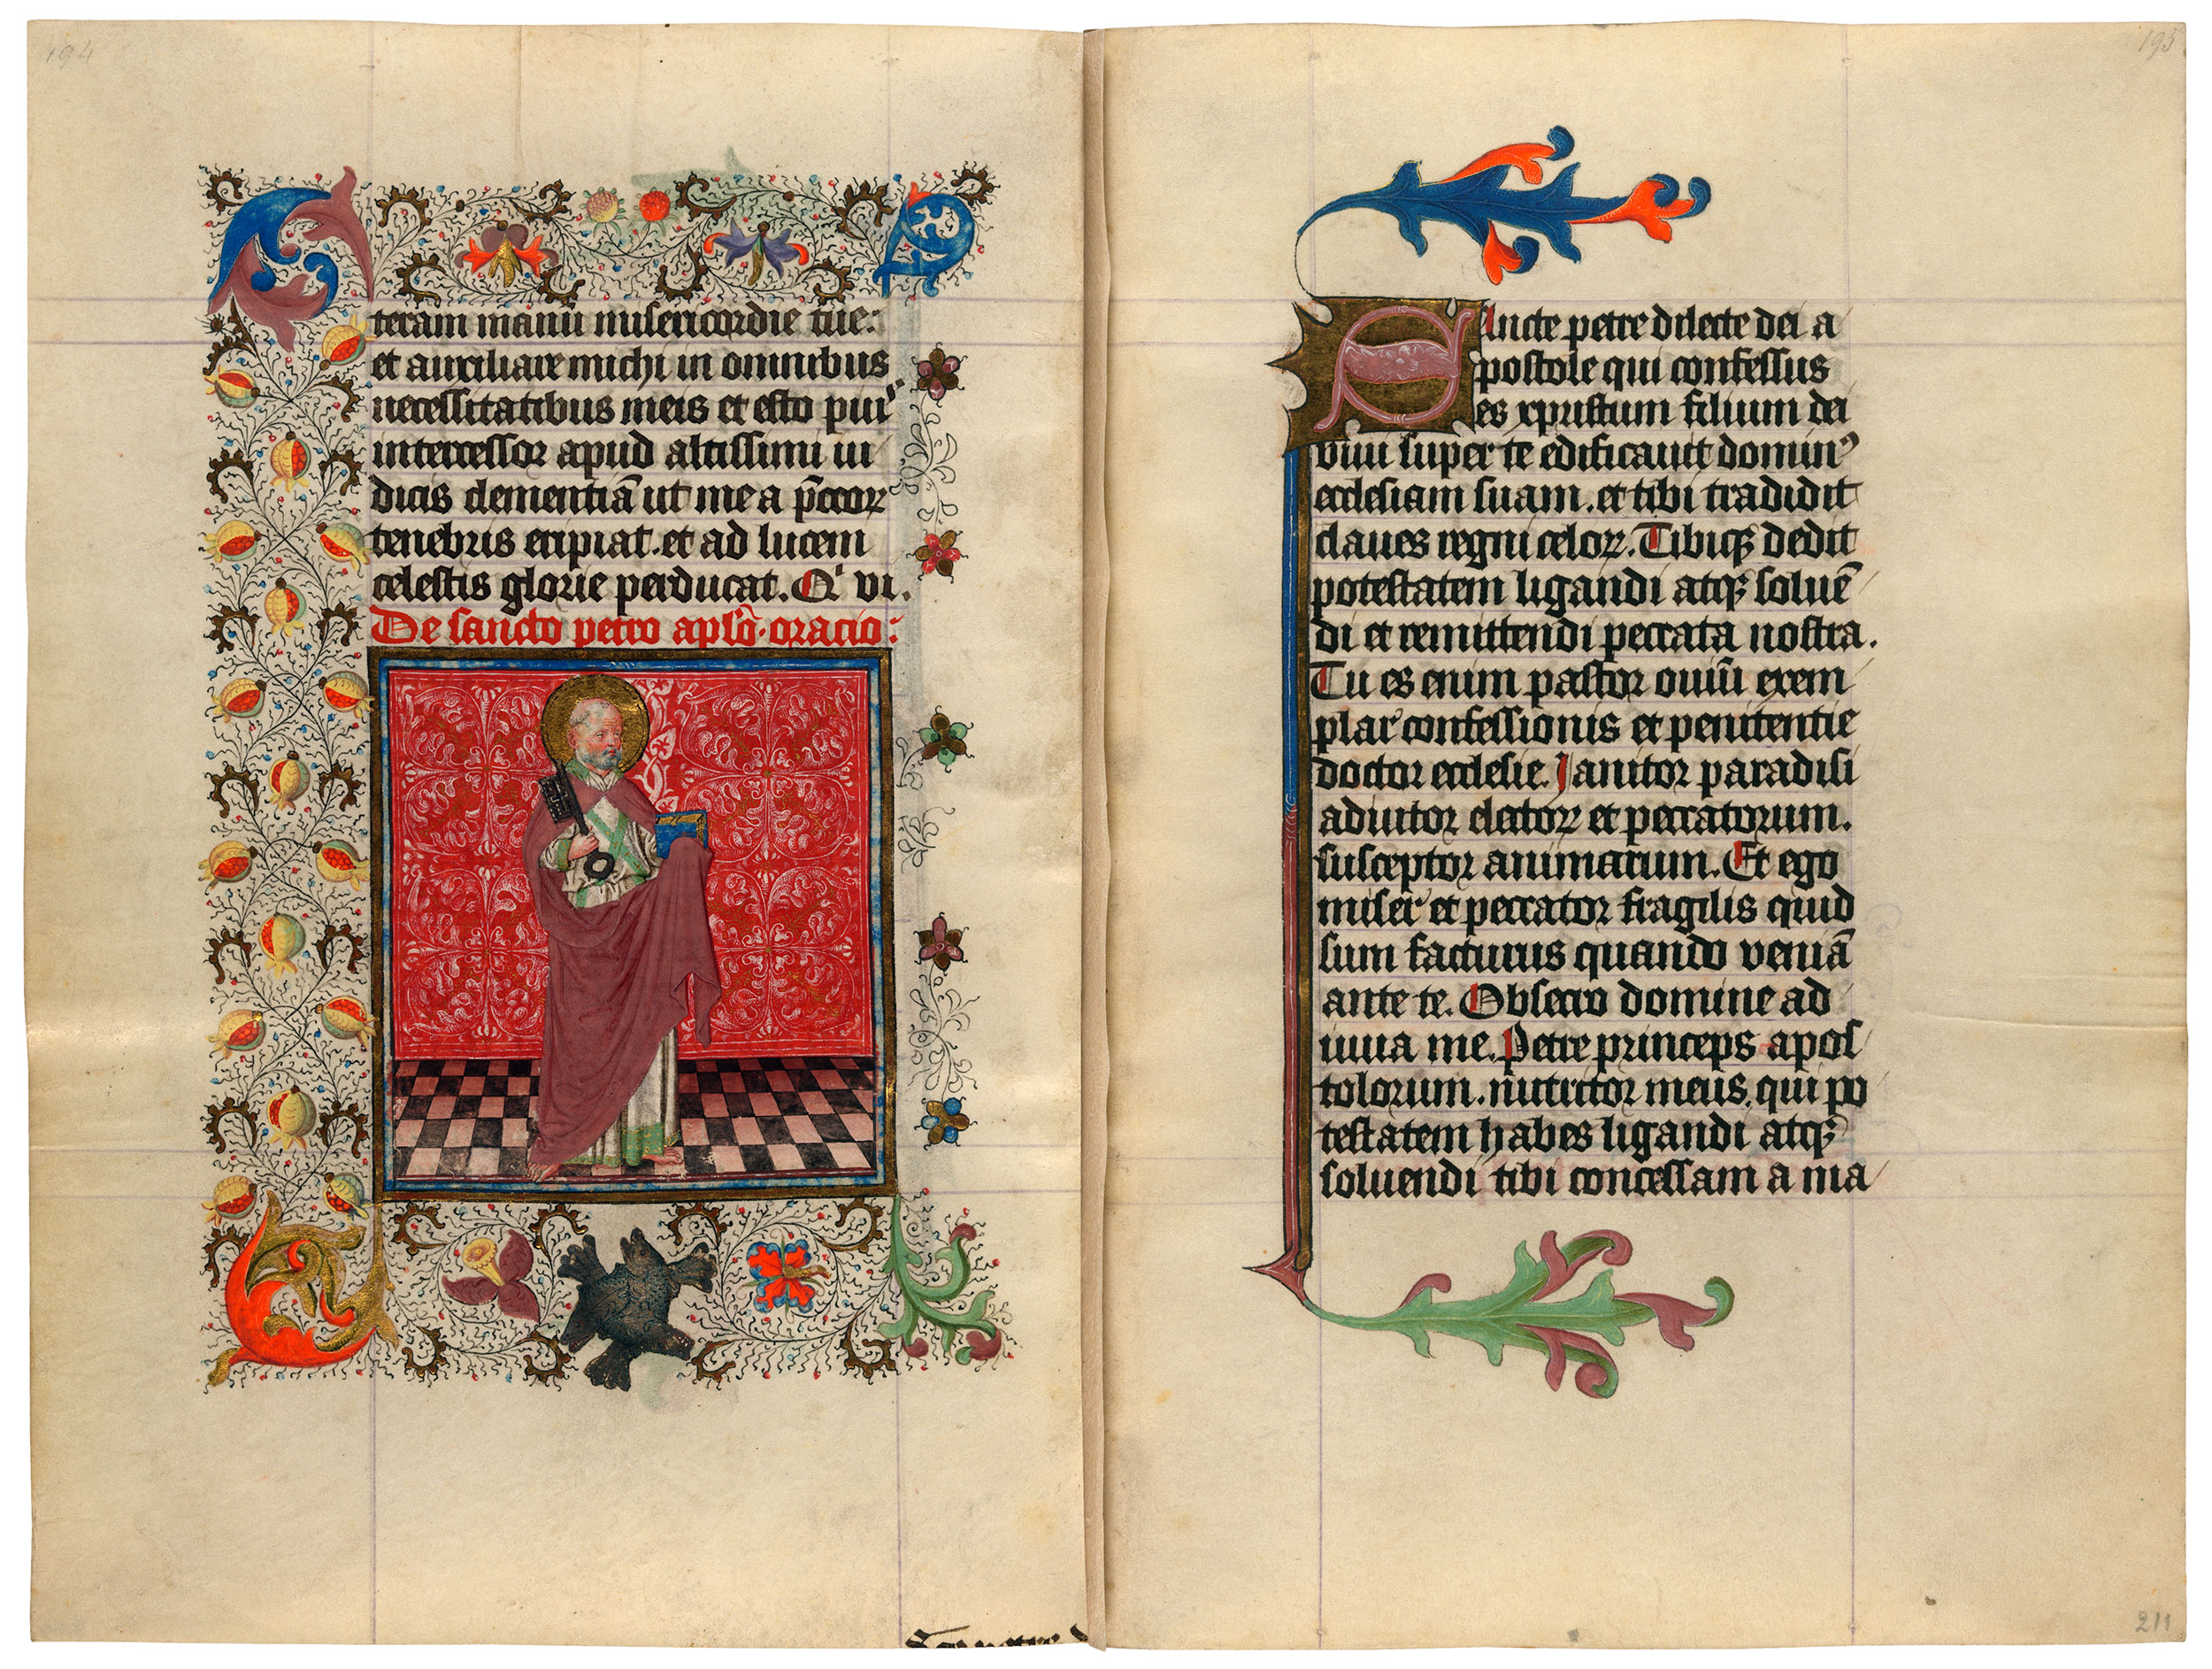 194
teram manū misericordie tue:
et auxiliare michi in omnibus
necessitatibus meis et esto pius
intercessor apud altissimi iu
dicis clementiā ut me a pccōꝝ
tenebris eripiat. et ad lucem
celestis glorie perducat. Qi vi.
De sancto petro apl̄o. oracio:
195
Sancte petre dilecte dei a
postole qui confessus
es xpristum filium dei
vivi super te edificauit dominꝰ
ecclesiam suam. et tibi tradidit
claues regni celoꝝ. Tibiqꝫ dedit
potestatem ligandi atqꝫ soluē
di et remittendi peccata nostra.
Tu es enim pastor ouiū exem
plar confessionis et penitentie
doctor ecclesie. Janitor paradisi
adiutor electoꝝ et peccatorum.
susceptor animarum. Et ego
miser et peccator fragilis quid
sum facturus quando veniā
ante te. Obsecro domine ad
iuua me. Petre princeps apos
tolorum. nutritor meus. qui po
testatem habes ligandi atqꝫ
soluendi tibi concessam a ma
211